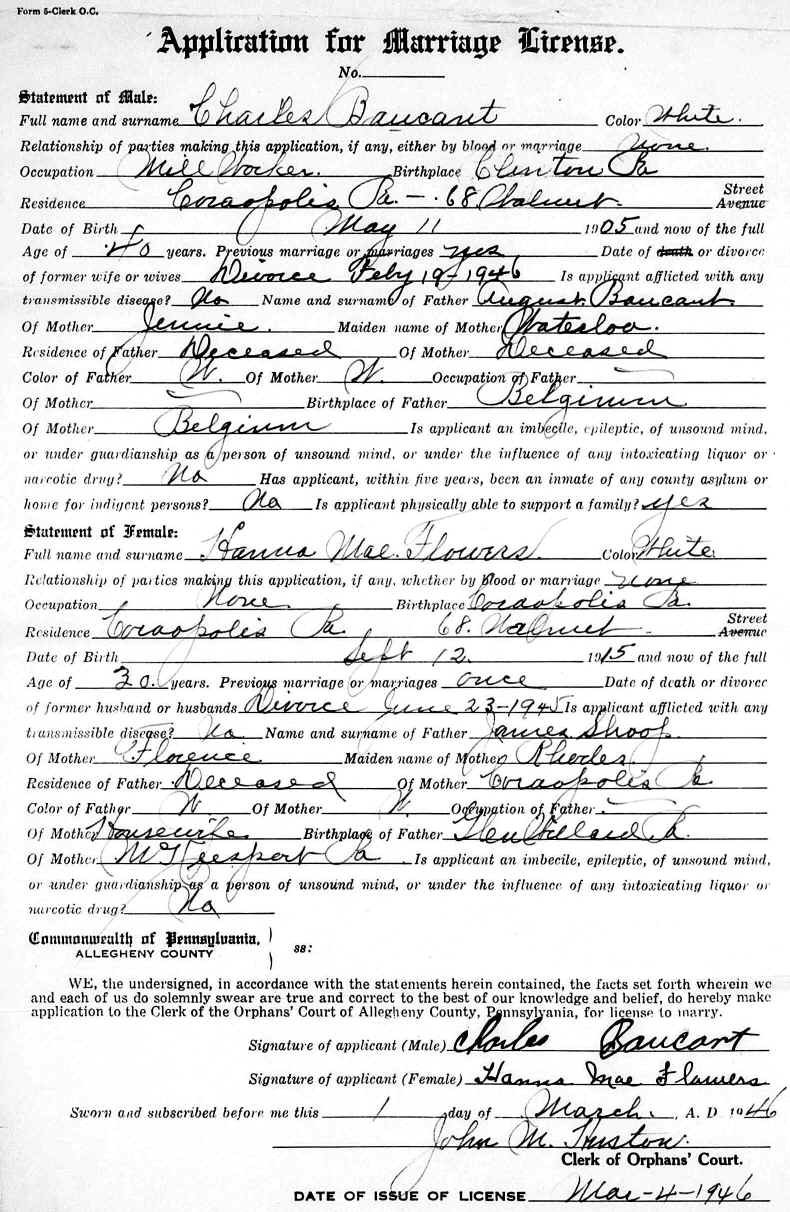 Form 5-Clerk O.C.
Application for Marriage License.
No.
Statement of Male:
Full name and surname Charles Baucant Color White.
Relationship of parties making this application, if any, either by blood or marriage none.
Occupation Mill Worker. Birthplace Clinton Pa
Residence Coraopolis Pa. - 68 Walnut. Street Avenue
Date of Birth May 11 1905 and now of the full
Age of 40 years. Previous marriage or marriages yes Date of death or divorce
of former wife or wives Divorce Feby 19-1946 Is applicant afflicted with any
transmissible disease? No Name and surname of Father August Baucant.
Of Mother Jennie. Maiden name of Mother Waterloo.
Residence of Father Deceased Of Mother Deceased
Color of Father W. Of Mother W. Occupation of Father
Of Mother Birthplace of Father Belginum
Of Mother Belginum Is applicant an imbecile, epileptic, of unsound mind,
or under guardianship as a person of unsound mind, or under the influence of any intoxicating liquor or
narcotic drug? No Has applicant, within five years, been an inmate of any county asylum or
home for indigent persons? No Is applicant physically able to support a family? yes
Statement of Female:
Full name and surname Hanna Mae Flowers. Color White
Relationship of parties making this application, if any, whether by blood or marriage none
Occupation None. Birthplace Coraopolis Pa.
Residence Coraopolis Pa. 68. Walnut Street Avenue
Date of Birth Sept 12. 1915 and now of the full
Age of 30. years. Previous marriage or marriages once Date of death or divorce
of former husband or husbands Divorce June 23-1945 Is applicant afflicted with any
transmissible disease? No Name and surname of Father James Shoop.
Of Mother Florence Maiden name of Mother Rhodes
Residence of Father Deceased Of Mother Coraopolis Pa
Color of Father W. Of Mother W. Occupation of Father
Of Mother Housewife Birthplace of Father Glen Willard Pa.
Of Mother McKeesport Pa Is applicant an imbecile, epileptic, of unsound mind,
or under guardianship as a person of unsound mind, or under the influence of any intoxicating liquor or
narcotic drug? No
Commonwealth of Pennsylvania,
ALLEGHENY COUNTY ss:
WE, the undersigned, in accordance with the statements herein contained, the facts set forth wherein we
and each of us do solemnly swear are true and correct to the best of our knowledge and belief, do hereby make
application to the Clerk of the Orphans' Court of Allegheny County, Pennsylvania, for license to marry.
Signature of applicant (Male) Charles Baucant
Signature of applicant (Female) Hanna Mae Flowers
Sworn and subscribed before me this 1 day of March. A. D 1946
John M. Huston.
Clerk of Orphans' Court.
DATE OF ISSUE OF LICENSE Mar-4-1946